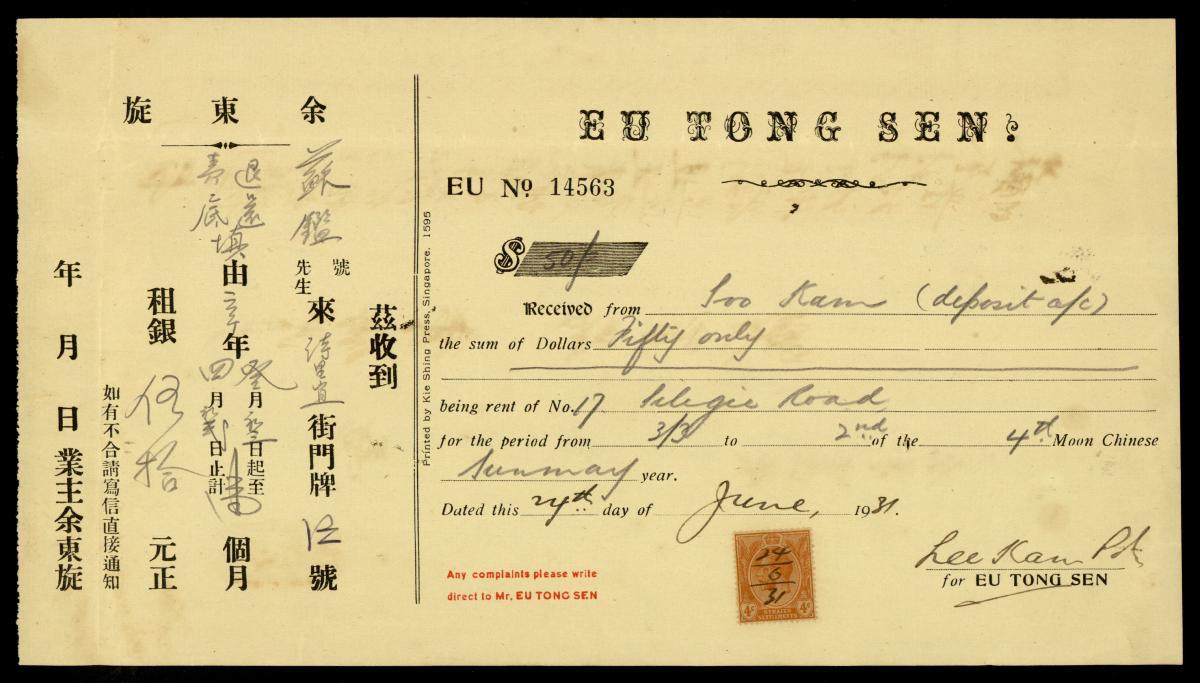 余東旋
茲收到
蘇鑑
號
先生
來
街門牌
號
退還
由
年
月
日起至
四月
日止計
個月
租銀伍拾元正
如有不合請寫信直接通知
年月日業主余東旋
Printed by Kie Shing Press, Singapore. 1595
EU TONG SEN.
EU No 14563
$ 50/-
Received from Soo Kam (deposit a/c)
the sum of Dollars Fifty only
being rent of No. 17 Selegie Road
for the period from 3/3 to 2nd of the 4th Moon Chinese
Sunmay year.
Dated this 24th day of June, 1931.
Any complaints please write
direct to Mr. EU TONG SEN
24
6
31
4c 4c
STRAITS
SETTLEMENTS
Lee Kam
for EU TONG SEN